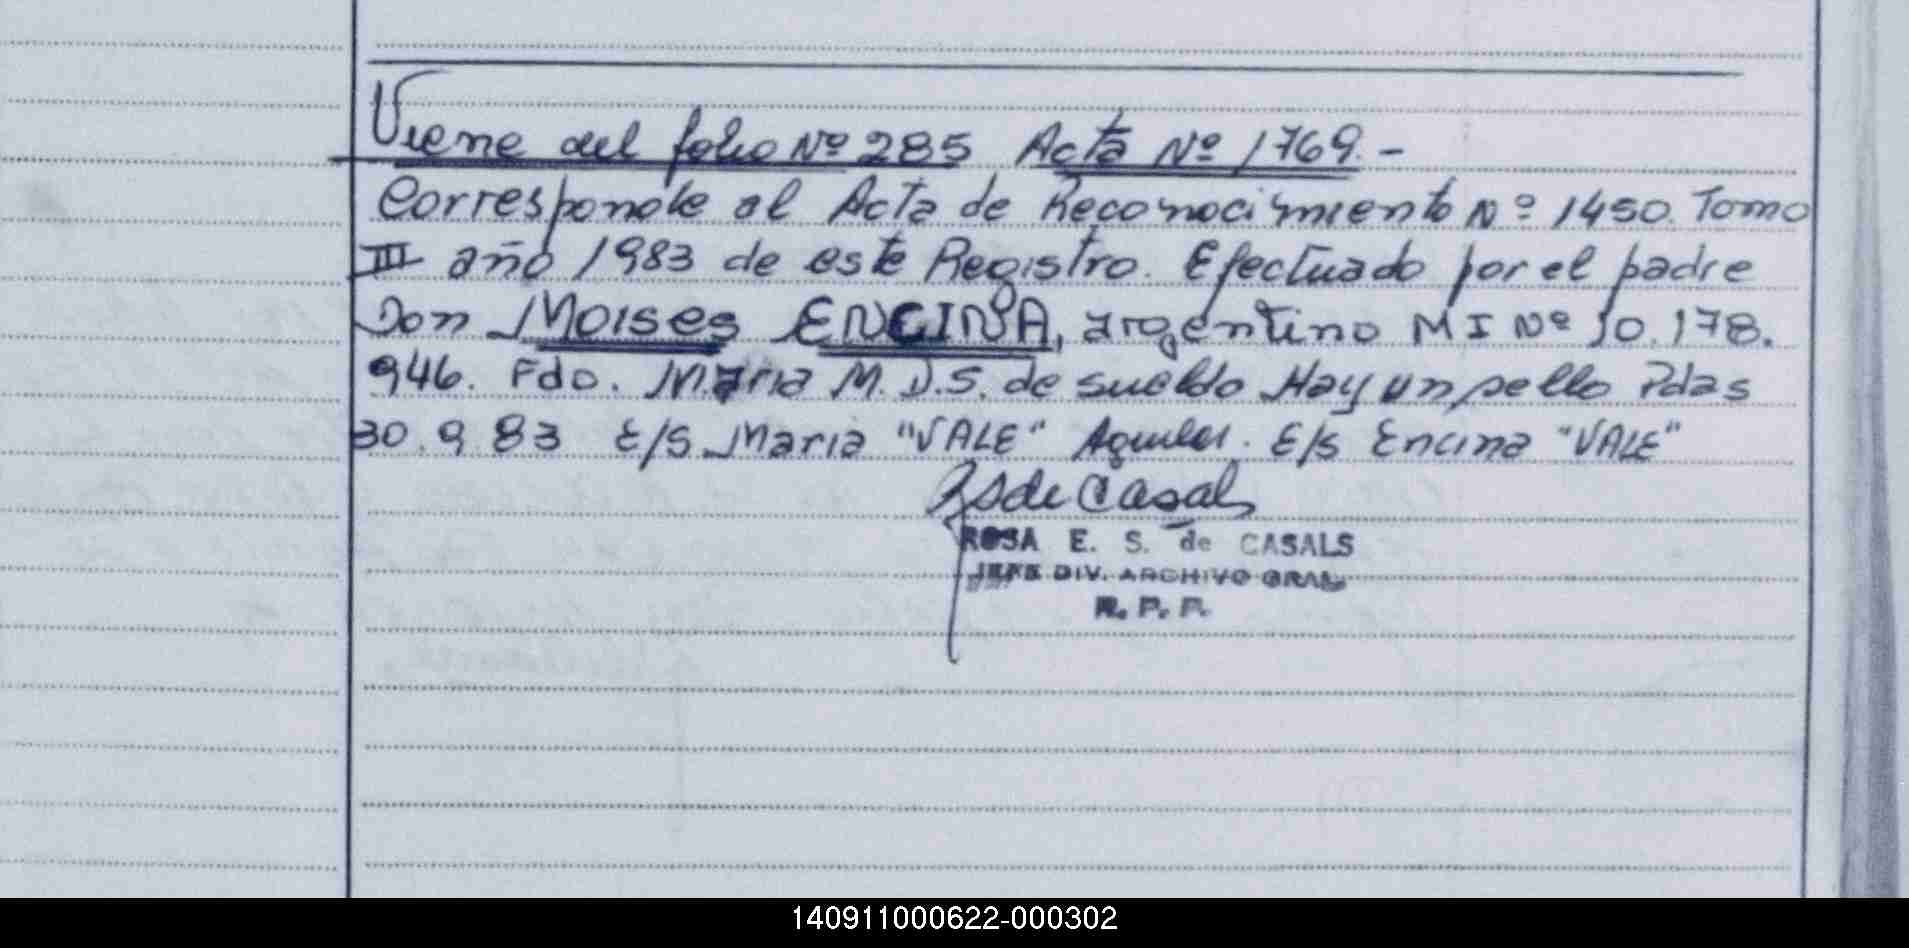 Viene del folio Nº 285 Acta Nº 1769.-
Corresponde al Acta de Reconocimiento Nº 1450. Tomo
III año 1983 de este Registro. Efectuado por el padre
Don Moises ENCINA, argentino M I Nº 10.178.
946. Fdo. Maria M. D. S. de sueldo Hay un sello Pdas
30.9.83 E/S. Maria "VALE" E/s Encina "VALE"
de Casals
ROSA E. S. de CASALS
JEFE DIV. ARCHIVO GRAL.
R. P. P.
140911000622-000302